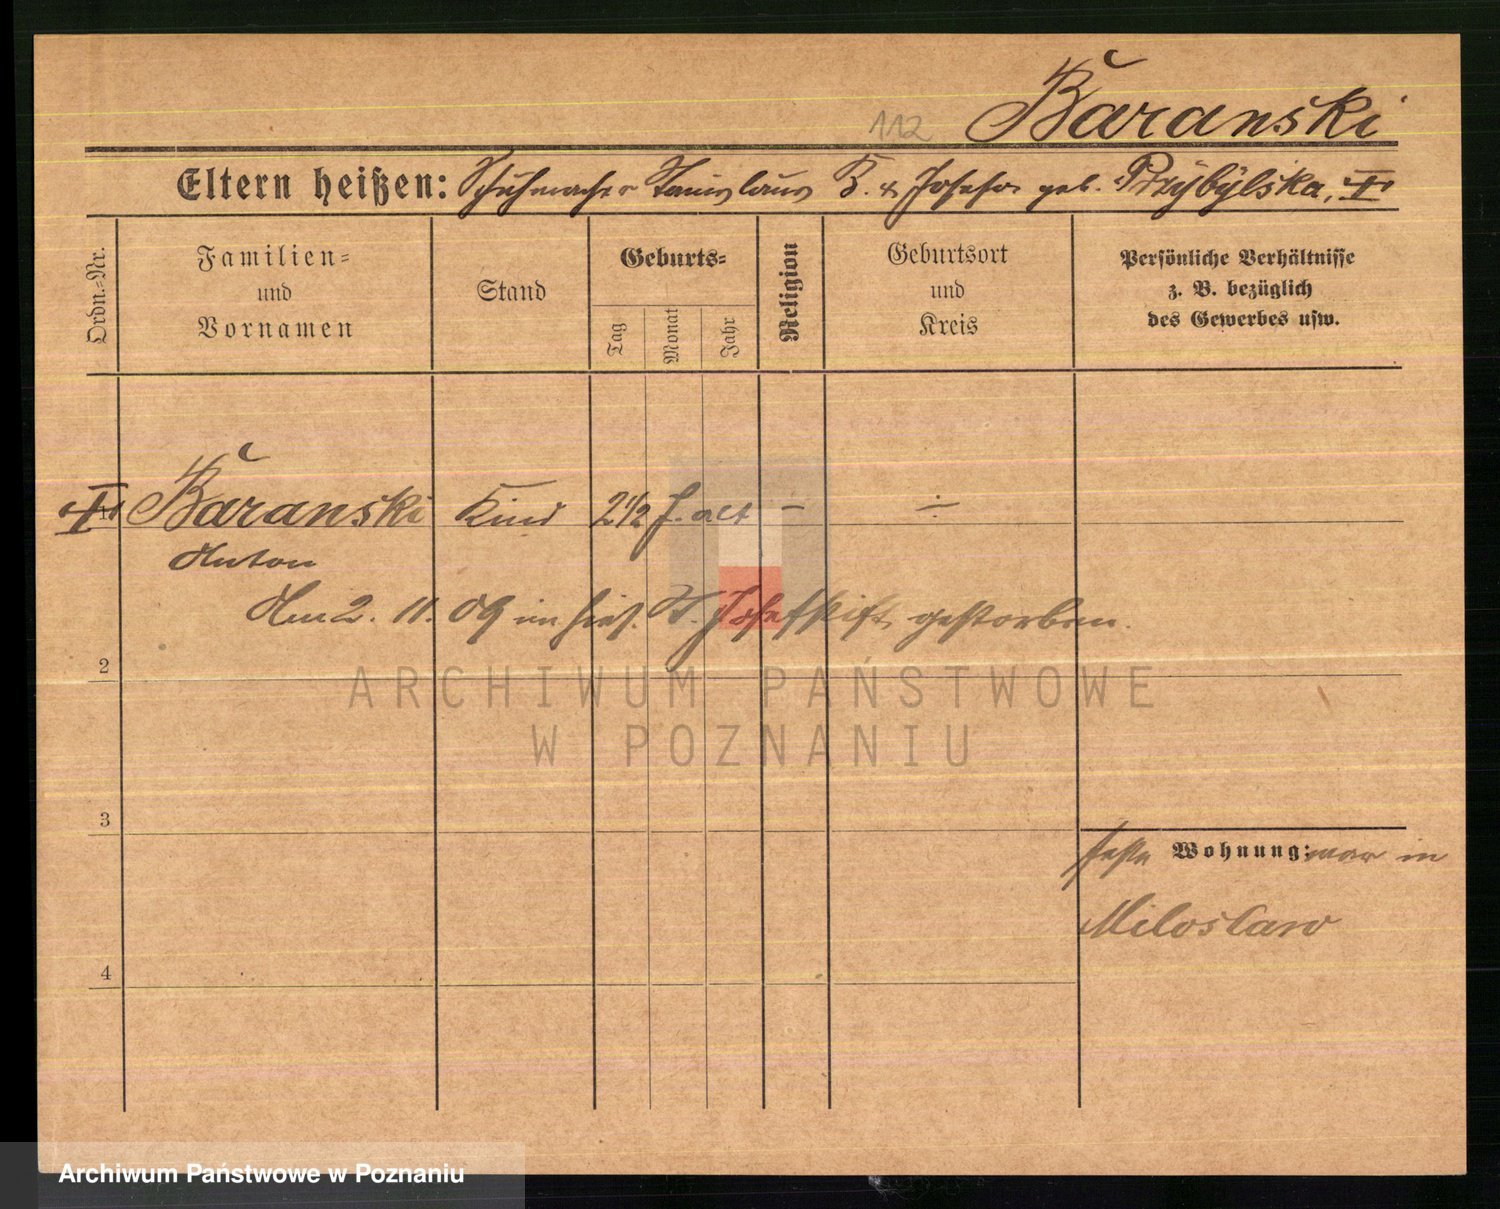 112 Baranski
Eltern heißen: Schuhmacher Stanislaus B. & Josefa geb. Przybylska,
Ordn.-Nr.
Familien-
und
Vornamen
Stand
Geburts-
Tag
Monat
Jahr
Religion
Geburtsort
und
Kreis
Persönliche Verhältnisse
z. B. bezüglich
des Gewerbes usw.
1 Baranski Kind 2 1/2 J. alt - ÷
Anton
Am 2. 11. 09 im hies. St. Josefstift gestorben.
2
ARCHIWUM PAŃSTWOWE
W POZNANIU
3
feste Wohnung: war in
Miloslaw
4
Archiwum Państwowe w Poznaniu